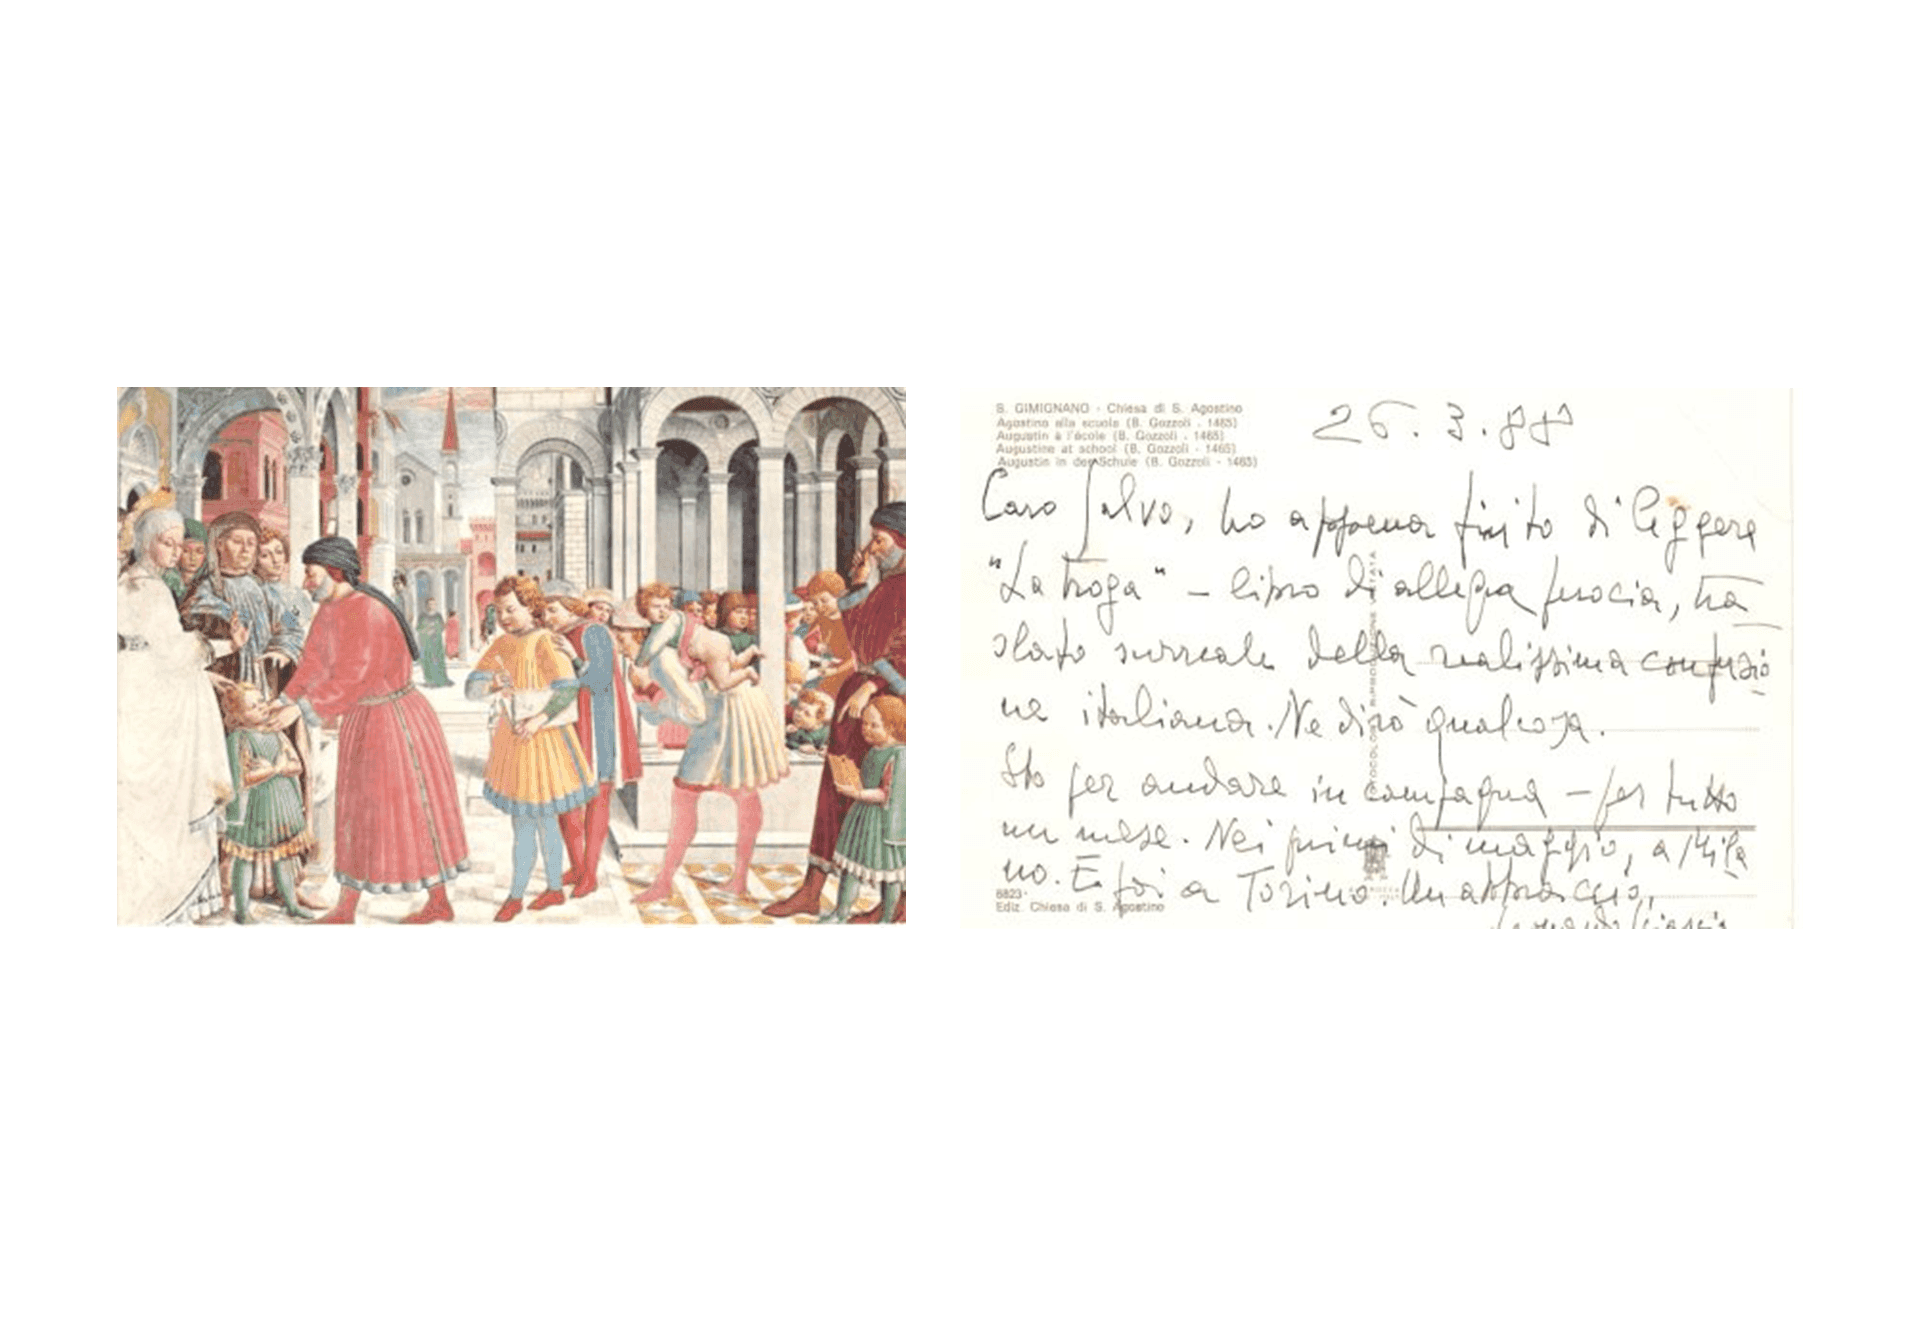 S. GIMIGNANO - Chiesa di S. Agostino
Agostino alla scuola (B. Gozzoli - 1465)
Augustin à l'école (B. Gozzoli - 1465)
Augustine at school (B. Gozzoli - 1465)
Augustin in der Schule (B. Gozzoli - 1465)
26.3.88
Caro Salvo, ho appena finito di leggere
"La Troga" - libro di allegra ferocia, tra
slato surreale della realissima confusio
ne italiana. Ne dirò qualcosa.
Sto per andare in campagna - per tutto
un mese. Nei primi di maggio, a Mila
no. E poi a Torino. Un abbraccio,
6823
Ediz. Chiesa di S. Agostino